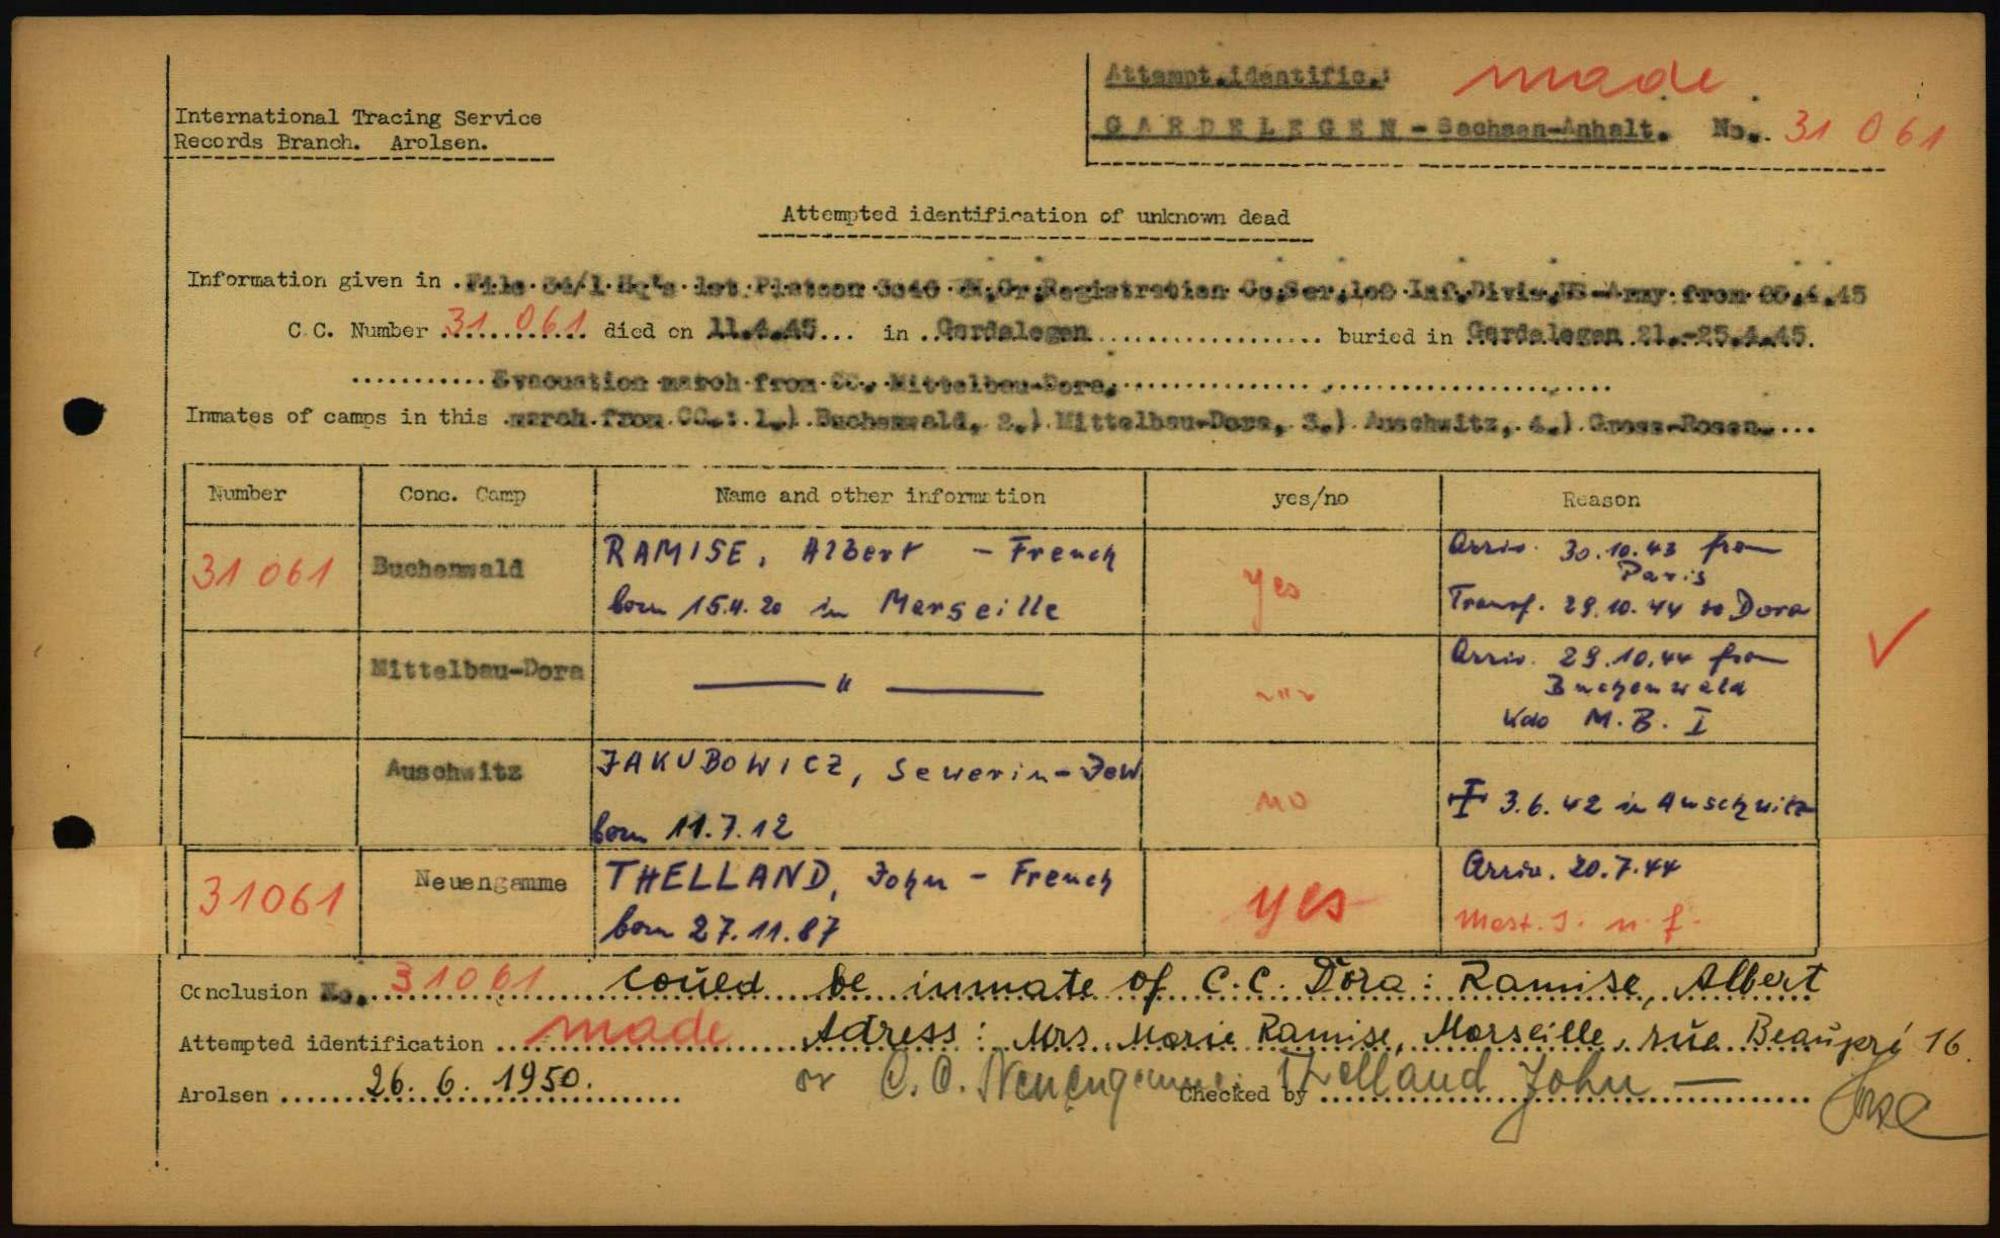 Attempt.identific.: made
International Tracing Service
Records Branch. Arolsen.
GARDELEGEN - Sachsen-Anhalt. No. 31 061
Attempted identification of unknown dead
Information given in File 54/1 Hq's 1st Platoon 3046 Gr.Registration Co,Ser. Inf.Divis,US-Army from .4.45
C.C. Number 31 061 died on 11.4.45 in Gardelegen buried in Gardelegen 21.-25.4.45.
Evacuation march from CC. Mittelbau-Dora.
Inmates of camps in this march from CC.: 1.) Buchenwald, 2.) Mittelbau-Dora, 3.) Auschwitz, 4.) Gross-Rosen.
Number Conc. Camp Name and other information yes/no Reason
31 061 Buchenwald RAMISE, Albert - French
born 15.4.20 in Marseille yes Arriv. 30.10.43 from
Paris
Transf. 29.10.44 to Dora
Mittelbau-Dora — " — ~"~ Arriv. 29.10.44 from
Buchenwald
Kdo M.B. I
Auschwitz JAKUBOWICZ, Severin - Jew
born 11.7.12 no 3.6.42 in Auschwitz
31061 Neuengamme THELLAND, John - French
born 27.11.87 yes Arriv. 20.7.44
n. f.
Conclusion No. 31061 could be inmate of C.C. Dora: Ramise, Albert
Attempted identification made Adress: Mrs. Marie Ramise, Marseille, rue Beaupré 16.
or C.C. Neuengamme: Thelland John —
Arolsen 26. 6. 1950. Checked by